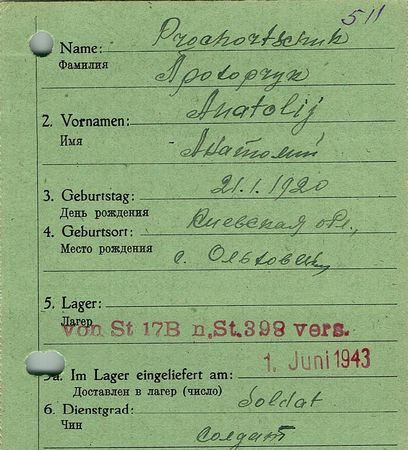 511
Name: Prochortschuk
Фамилия Прохорчук
2. Vornamen: Anatolij
Имя Анатолий
3. Geburtstag: 21.1.1920
День рождения
4. Geburtsort: Киевская обл.,
Место рождения с.
5. Lager:
Лагер
von St 17B n.St.398 vers.
1. Juni 1943
5a. Im Lager eingeliefert am:
Доставлен в лагер (число)
6. Dienstgrad: Soldat
Чин солдат